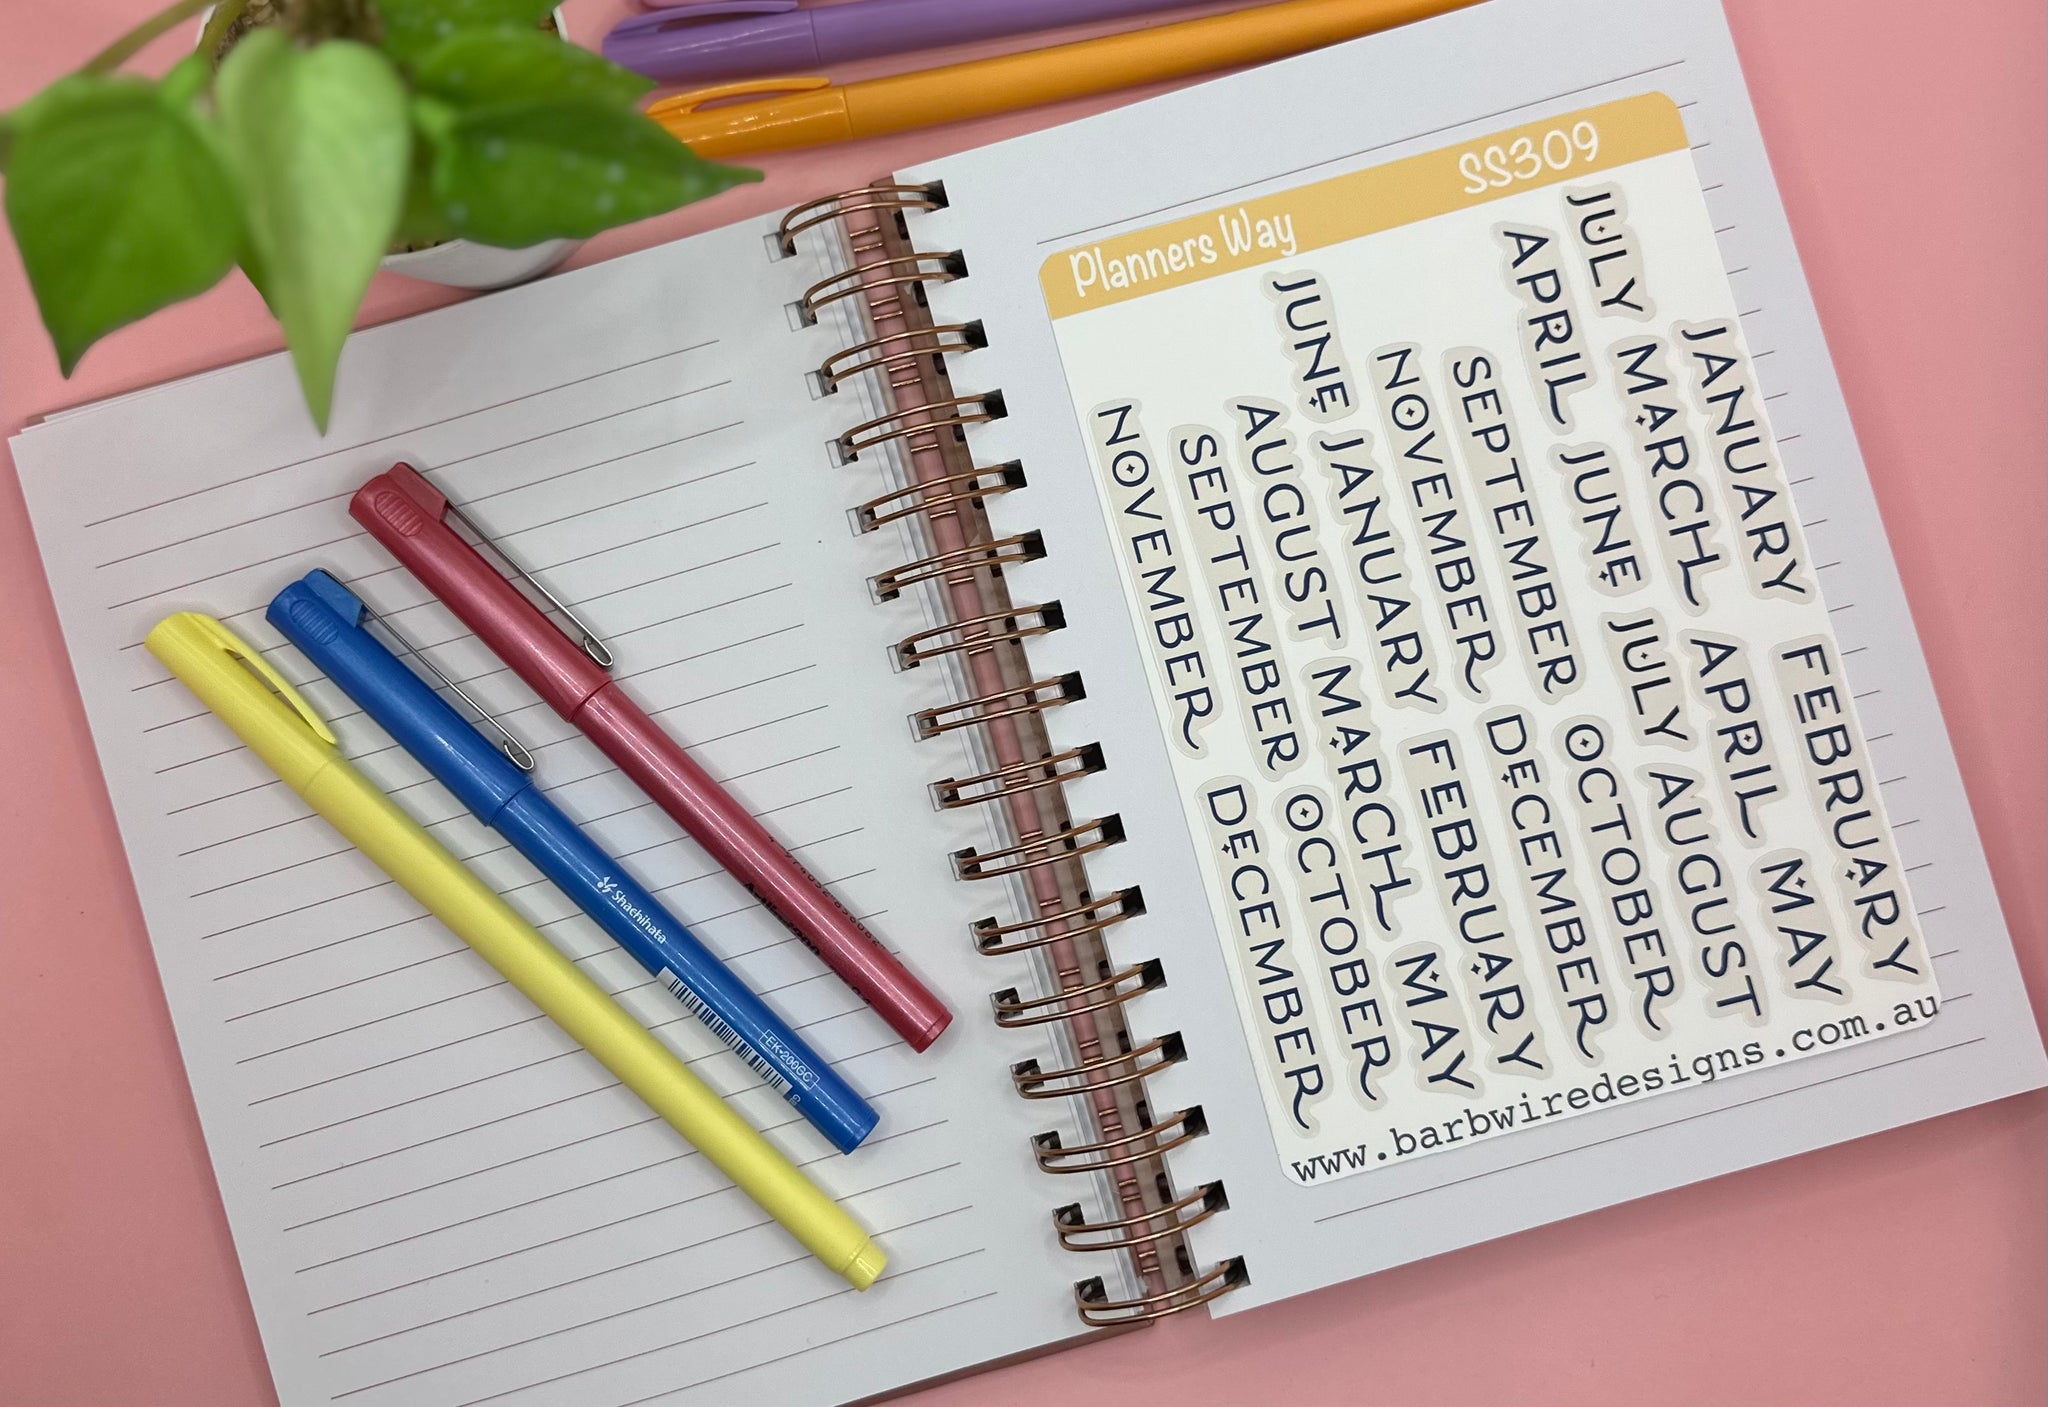 Planners Way
SS309
JULY
APRIL
JUNE
JANUARY
MARCH
NOVEMBER
SEPTEMBER
JUNE
AUGUST
JANUARY
SEPTEMBER
NOVEMBER
FEBRUARY
APRIL
JULY
MAY
AUGUST
OCTOBER
DECEMBER
FEBRUARY
MARCH
MAY
OCTOBER
DECEMBER
www.barbwiredesigns.com.au
Shachihata
EK-200GC